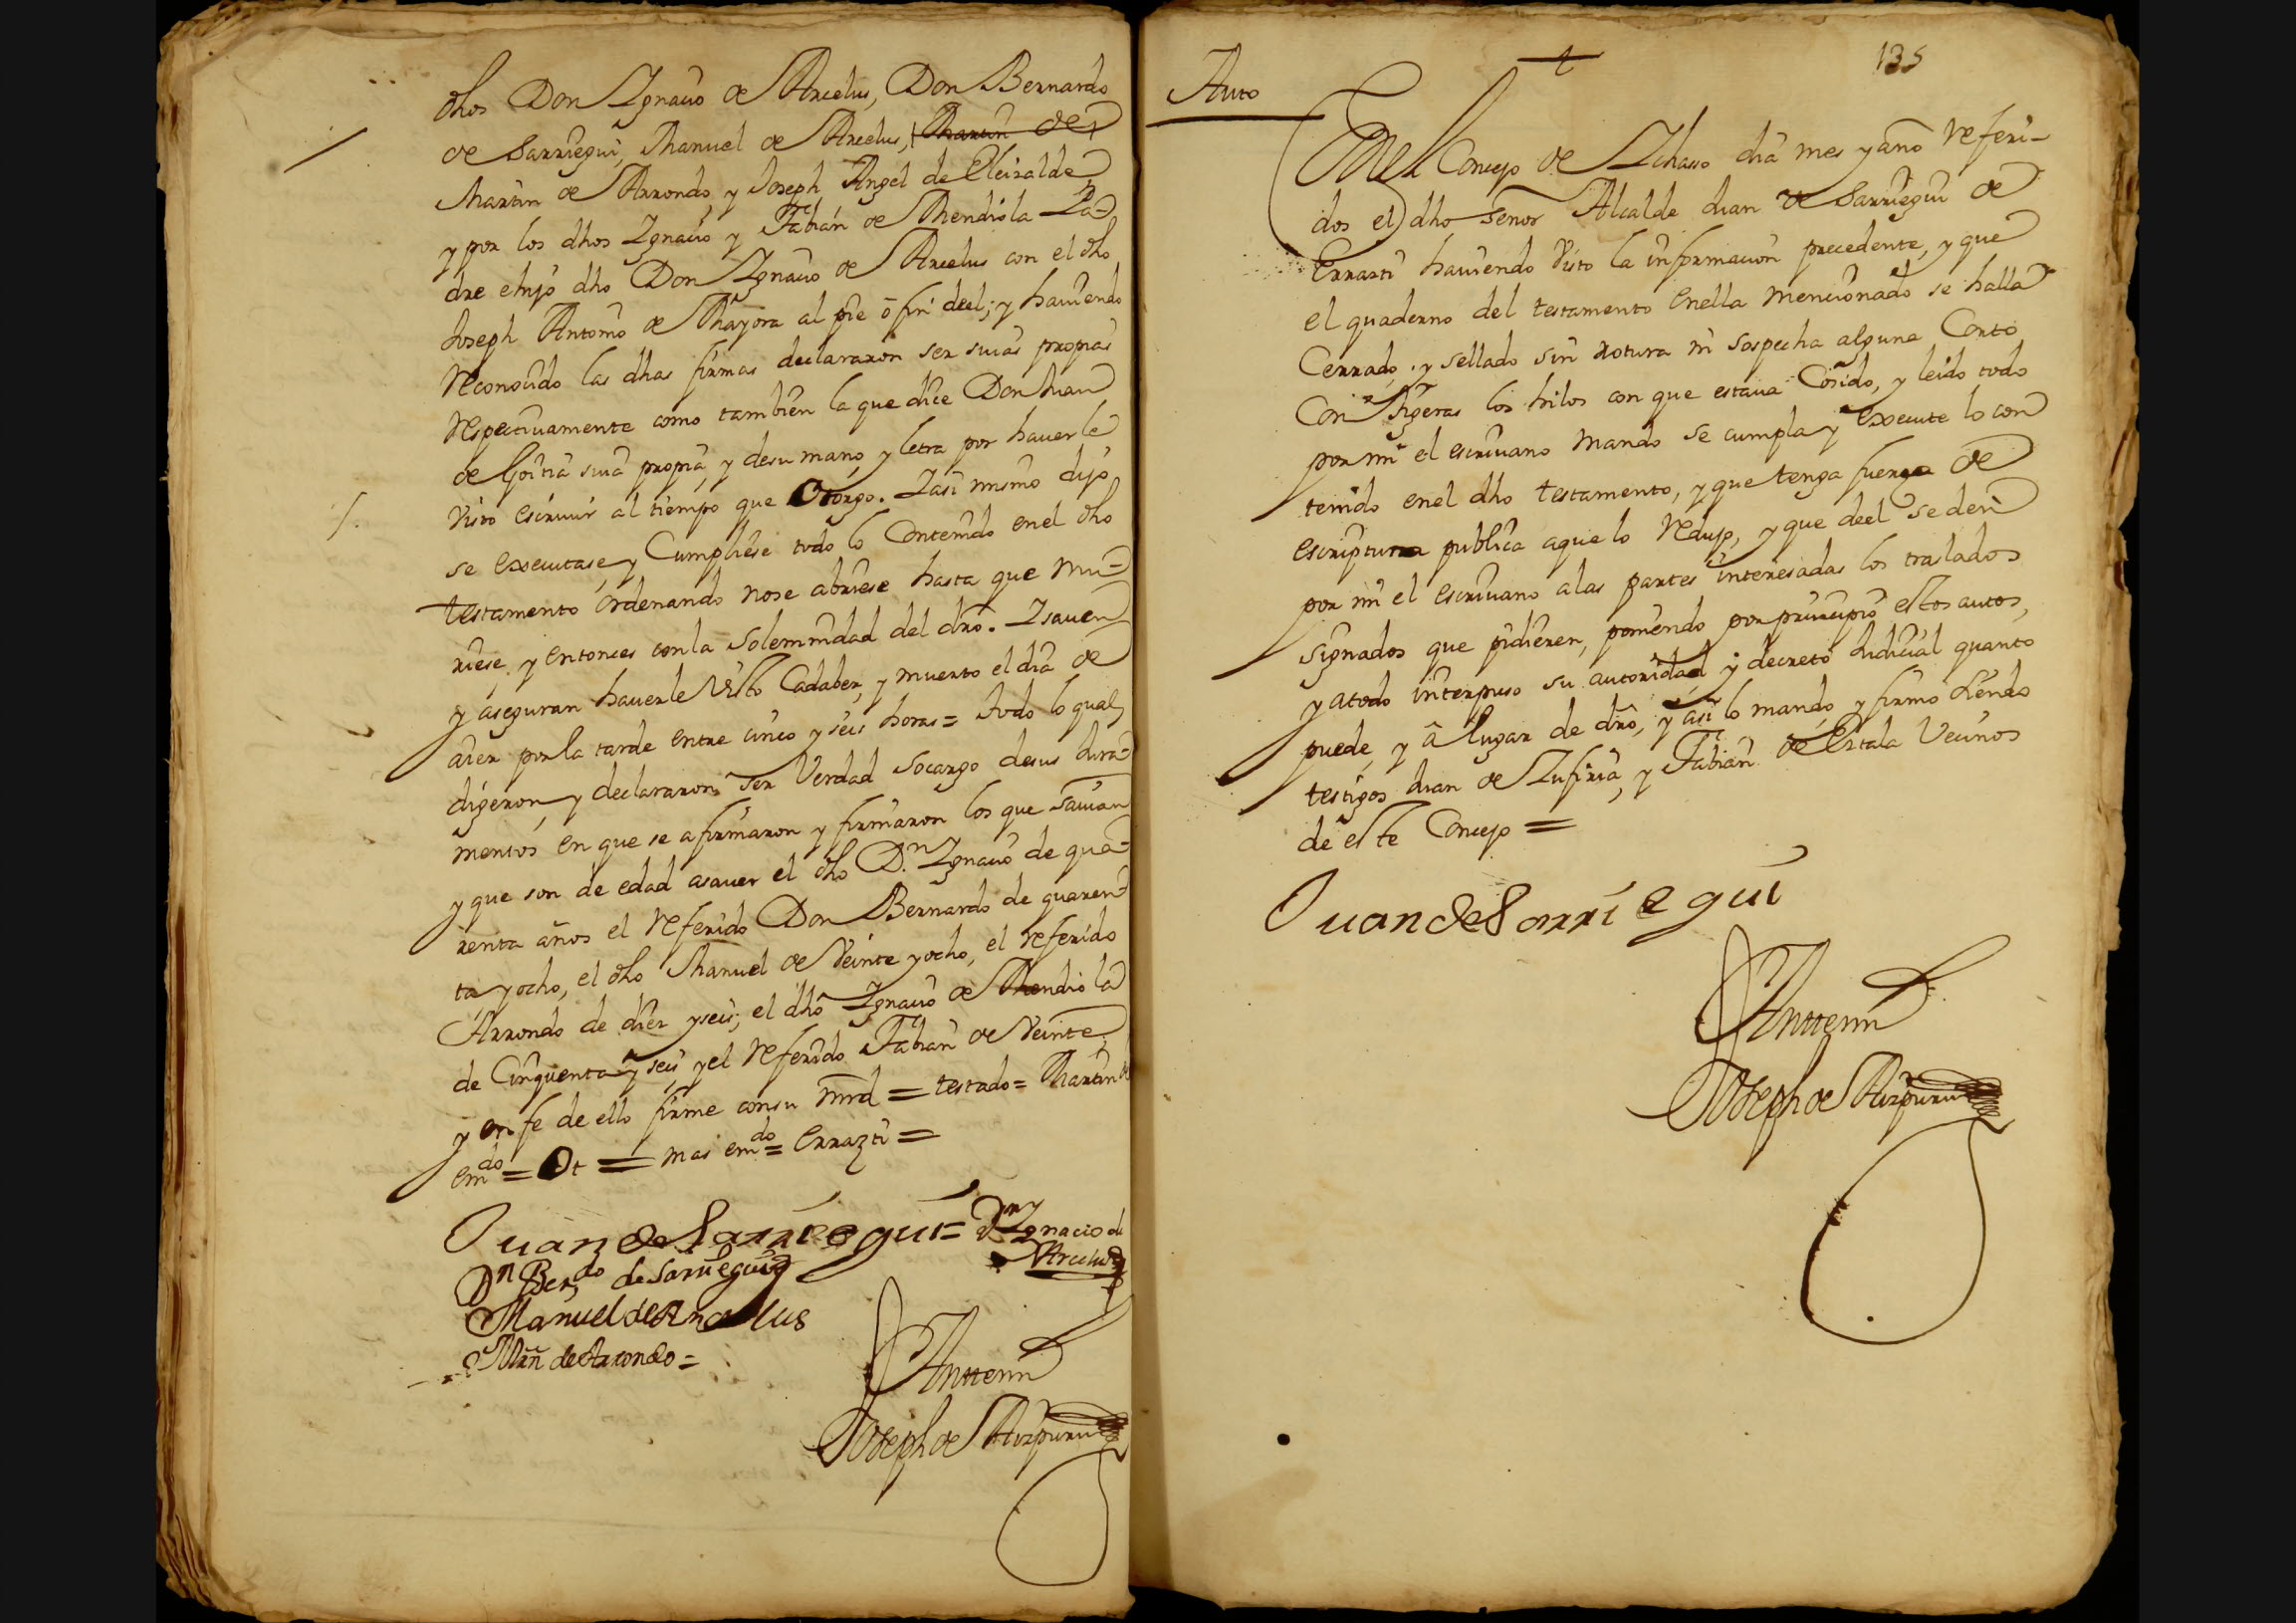 dhos Don Ignacio de Arcelus, Don Bernardo
de Sarriegui, Manuel de Arcelus, Martin de
Martin de Arrondo, y Joseph Angel de Eleizalde
y por los dhos Ignacio y Fabián de Mendiola Pa-
dre ehijo dho Don Ignacio de Arcelus con el dho
Joseph Antonio de Mayora al pie o fin deel; y haviendo
reconocido las dhas firmas declararon ser suias propias
respectivamente como tambien la que dice Don Juan
de Goitia suia propia, y desu mano, y letra por haverle
visto escrivir al tiempo que Otorgo. Iasi mismo dijo
se executase y Cumpliese todo lo Contenido enel dho
testamento ordenando nose abriese hasta que mu-
riese, y entonces conla solemnidad del dro. Isaven
y aseguran haverle visto Cadaber, y muerto el dia de
aier porla tarde entre cinco y seis horas = todo lo qual
digeron, y declararon ser Verdad Socargo desus jura-
mentos en que se afirmaron y firmaron los que savian
y que son de edad asaver el dho Dn. Ignacio de qua-
renta años el referido Don Bernardo de quaren-
ta y ocho, el dho Manuel de Veinte y ocho, el referido
Arrondo de diez y seis; el dho Ignacio de Mendiola
de Cinquenta y seis y el referido Fabian de Veinte,
y en fe de ello firme consu mrd = testado = Martin de
emdo = Ot = mas emdo = Errazti =
Juan de Sarriegui = Dn Ignacio de
Arcelus
Dn Berdo de Sarriegui
Manuel de Arcelus
Mrñ de Arrondo =
Anttemi
Joseph de Aizpuru
135
Auto
Enel Concejo de Ichaso dia mes y año referi-
dos el dho Señor Alcalde Juan de Sarriegui de
Errazti haviendo Visto la informacion precedente, y que
el quaderno del testamento enella mencionado se halla
Cerrado, y sellado sin rotura ni sospecha alguna Corto
Con tigeras los hilos con que estava Cosido, y leido todo
por mi el escrivano mando se cumpla y execute lo con
tenido enel dho testamento, y que tenga fuerza de
escriptura publica aque lo redujo, y que deel se den
por mi el escrivano alas partes interesadas los traslados
signados que pidieren, poniendo por principio estos autos,
y atodo interpuso su autoridad y decreto Judicial quanto
puede, y â lugar de dro, y asi lo mando, y firmo siendo
testigos Juan de Zufiria, y Fabián de Estala Vecinos
de este Concejo =
Juan de Sarriegui
Anttemi
Joseph de Aizpuru